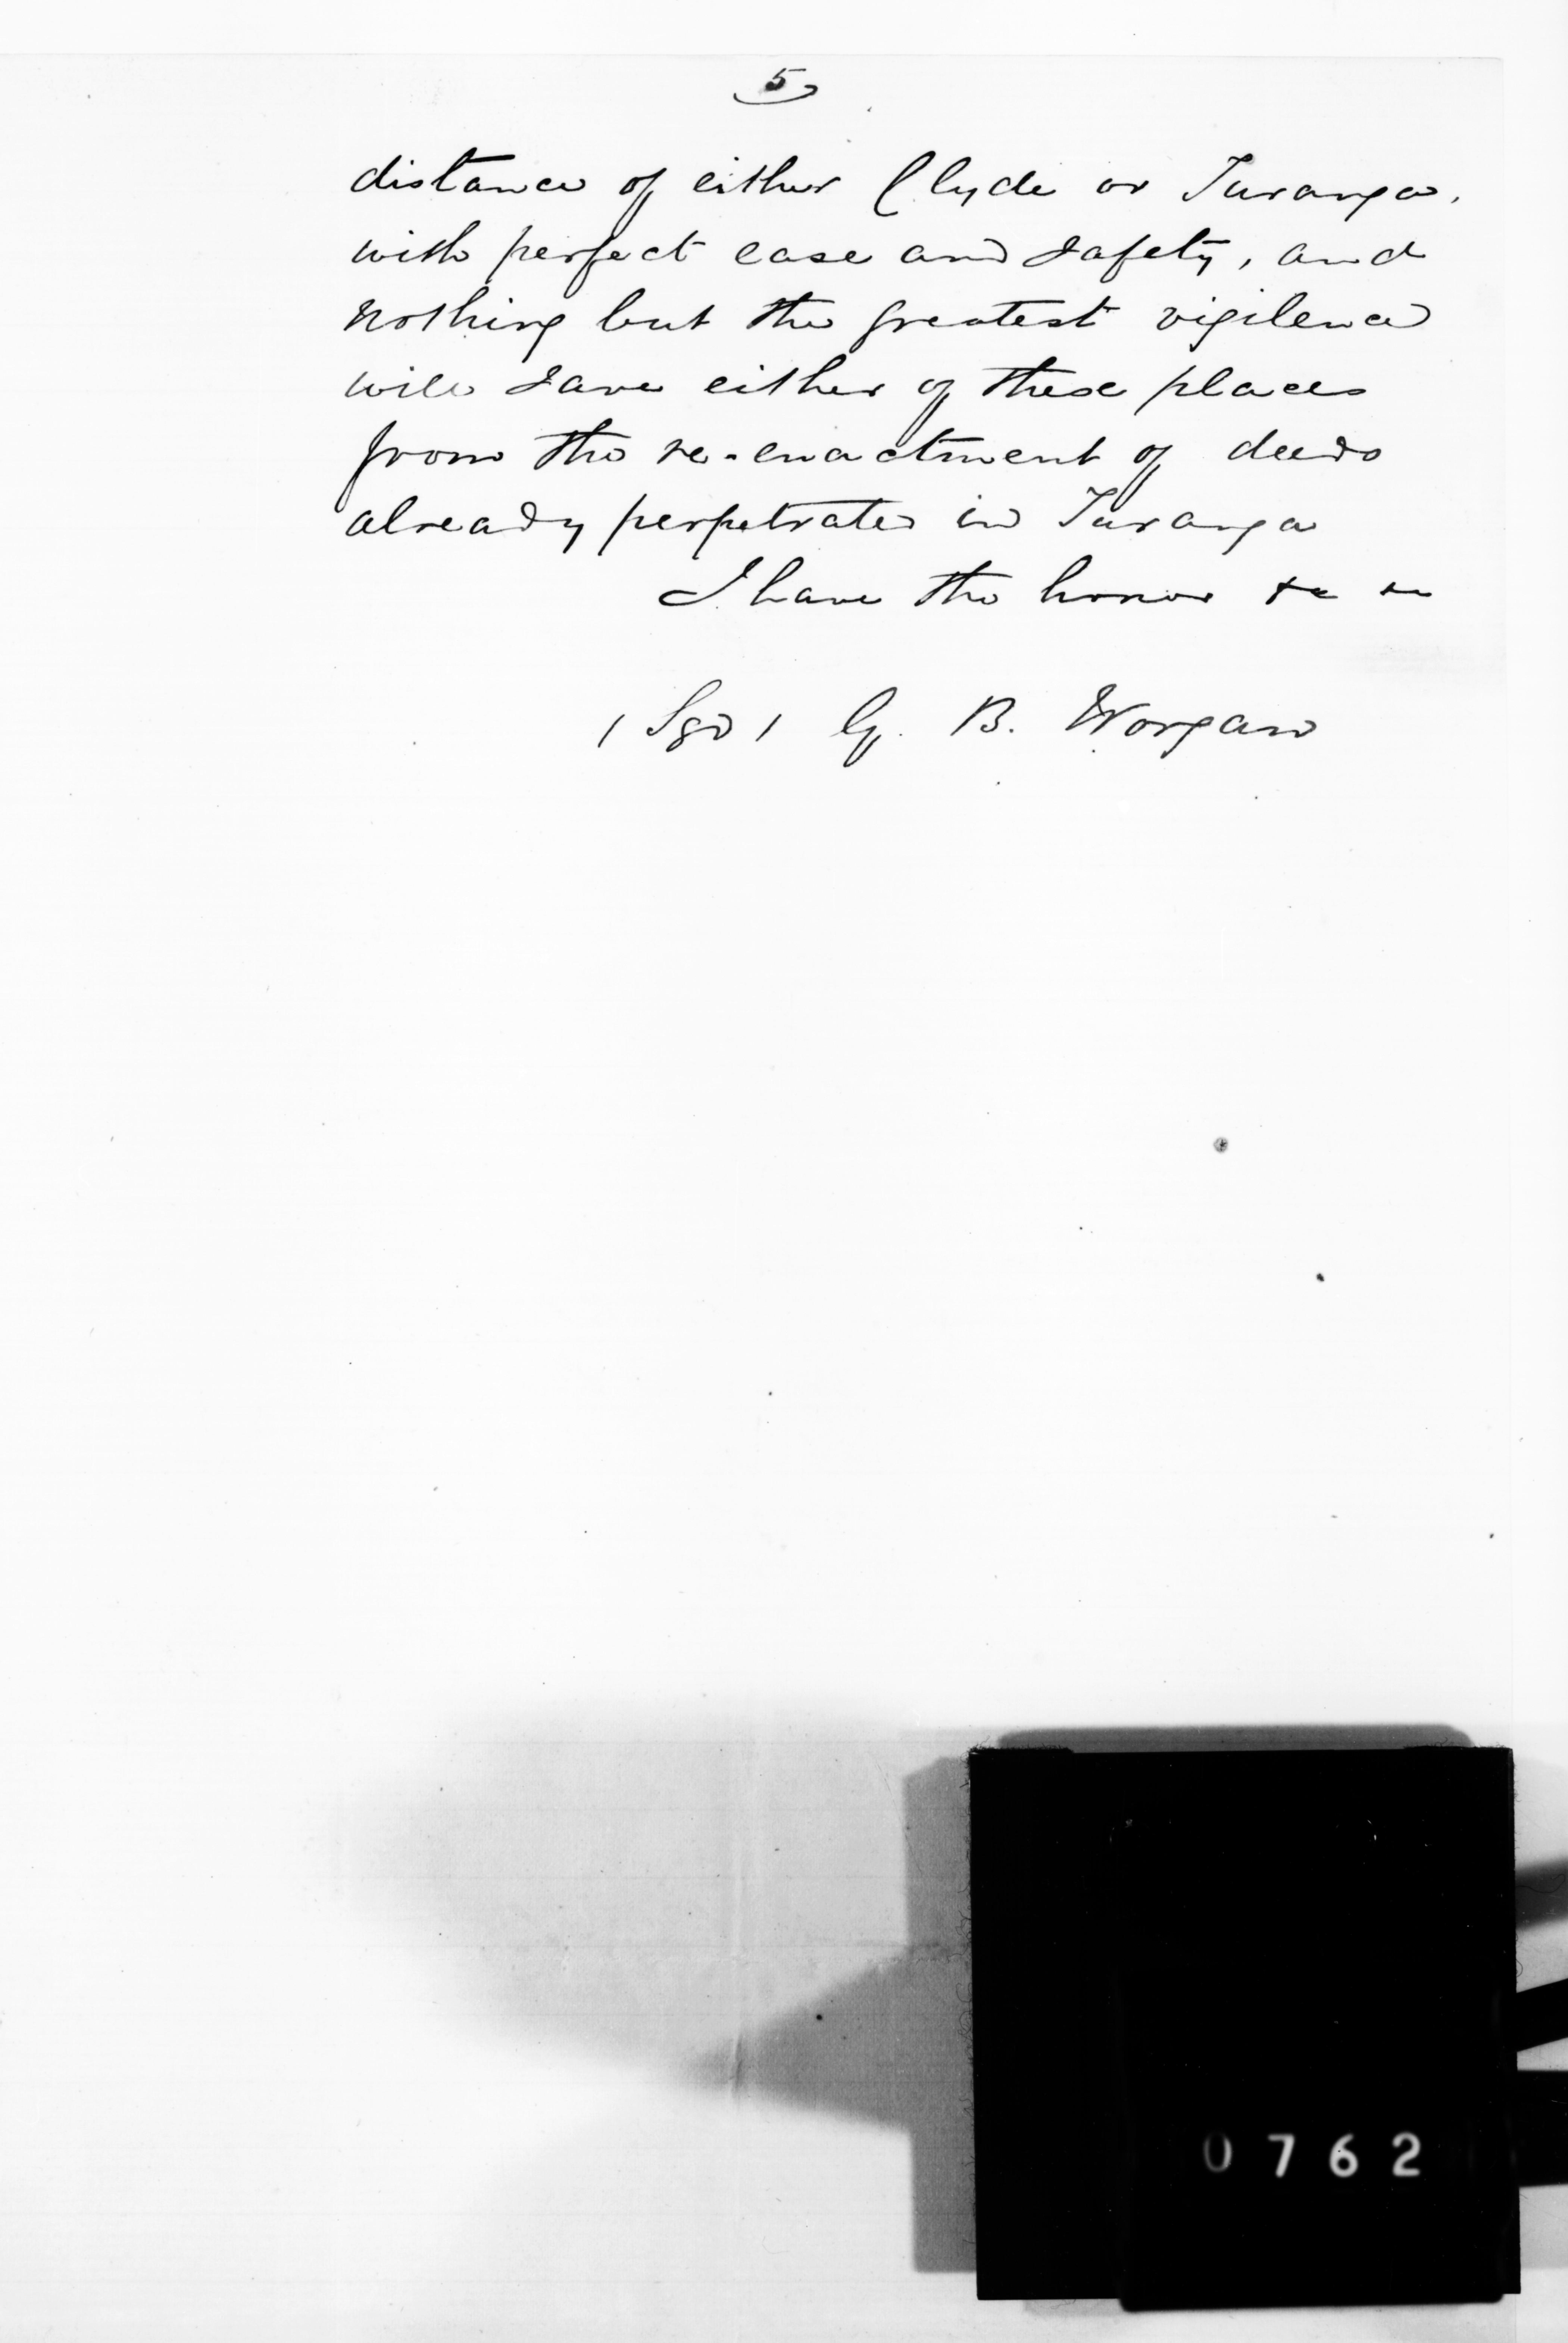 5
distance of either Clyde or Turanga.
with perfect ease and safety, and
nothing but the greatest vigilence
will save either of these places
from the re-enactment of deeds
already perpetrated in Turanga
I have the honor &c &c
(Sgd) G. B. Worgan
0762